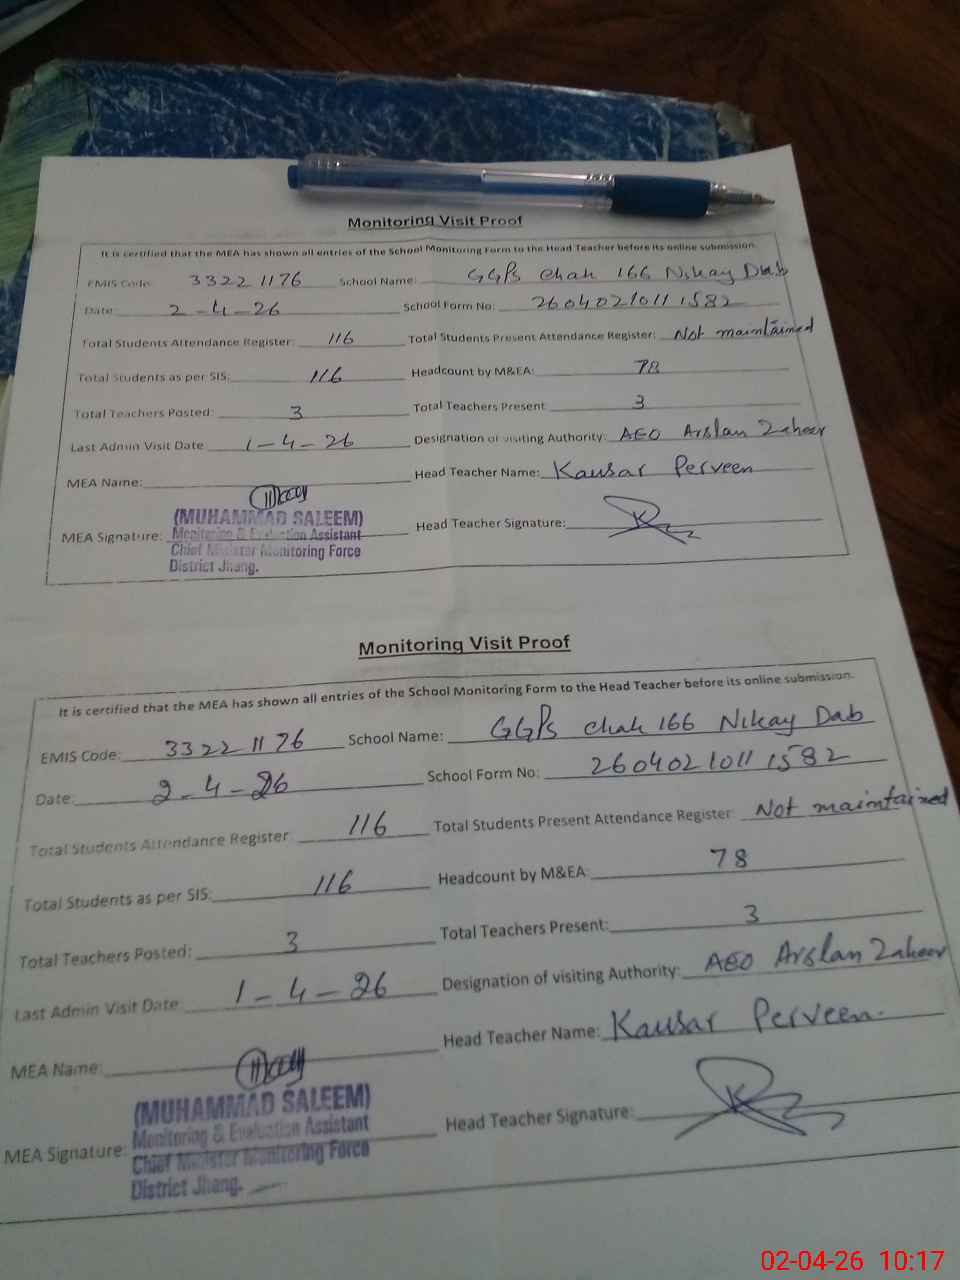 Monitoring Visit Proof
It is certified that the MEA has shown all entries of the School Monitoring Form to the Head Teacher before its online submission.
EMIS Code: 33221176 School Name: GGPS Chak 166 Nikay Dab
Date: 2-4-26 School Form No: 2604021011582
Total Students Attendance Register: 116 Total Students Present Attendance Register: Not maintained
Total Students as per SIS: 116 Headcount by M&EA: 78
Total Teachers Posted: 3 Total Teachers Present 3
Last Admin Visit Date 1-4-26 Designation of visiting Authority: AEO Arslan Zaheer
MEA Name: Head Teacher Name: Kausar Perveen
MEA Signature: Head Teacher Signature:
(MUHAMMAD SALEEM)
Monitoring & Evaluation Assistant
Chief Minister Monitoring Force
District Jhang.
Monitoring Visit Proof
It is certified that the MEA has shown all entries of the School Monitoring Form to the Head Teacher before its online submission.
EMIS Code: 33221176 School Name: GGPS Chak 166 Nikay Dab
Date: 2-4-26 School Form No: 2604021011582
Total Students Attendance Register: 116 Total Students Present Attendance Register: Not maintained
Total Students as per SIS: 116 Headcount by M&EA: 78
Total Teachers Posted: 3 Total Teachers Present: 3
Last Admin Visit Date: 1-4-26 Designation of visiting Authority: AEO Arslan Zaheer
MEA Name: Head Teacher Name: Kausar Perveen.
MEA Signature: Head Teacher Signature:
(MUHAMMAD SALEEM)
Monitoring & Evaluation Assistant
Chief Minister Monitoring Force
District Jhang.
02-04-26 10:17